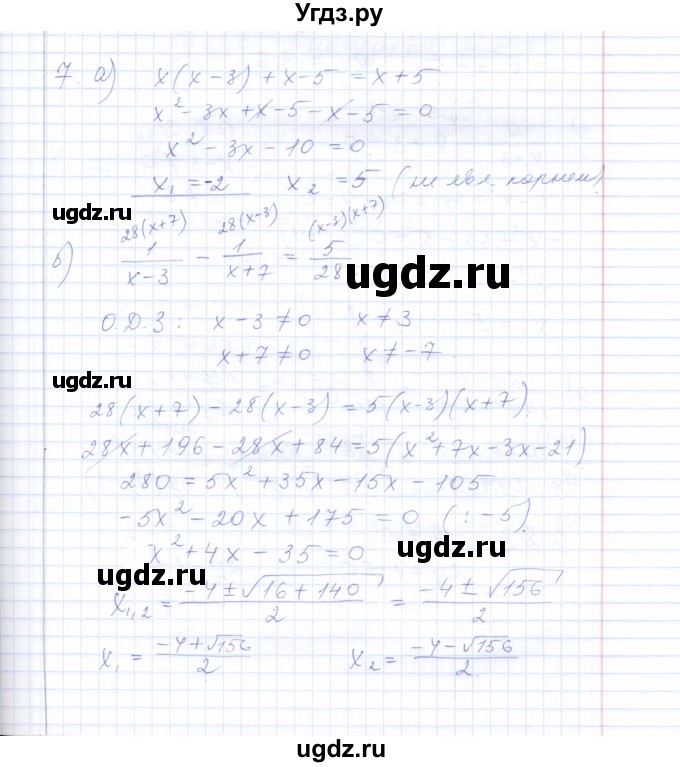 Угдз.ру
7. а) x(x-3)+x-5 = x+5
x²-3x+x-5-x-5=0
x²-3x-10=0
x₁=-2 x₂=5 (не явл. корнем)
угдз.ru
28(x+7) 28(x-3) (x-3)(x+7)
б) 1/(x-3) - 1/(x+7) = 5/28
угдз.ru
О.Д.З: x-3≠0 x≠3
x+7≠0 x≠-7
угдз.ru
28(x+7)-28(x-3)=5(x-3)(x+7)
28x+196-28x+84=5(x²+7x-3x-21)
280=5x²+35x-15x-105
-5x²-20x+175=0 (:-5)
x²+4x-35=0
угдз.ru
угдз.ru
x₁,₂ = (-4±√(16+140))/2 = (-4±√156)/2
x₁ = (-4+√156)/2 x₂ = (-4-√156)/2
угдз.ru